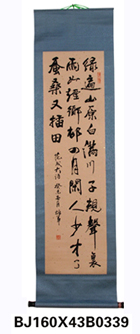 绿遍山原白满川子規聲裏
雨如煙鄉邨四月閑人少才了
蚕桑又插田
BJ160X43B0339